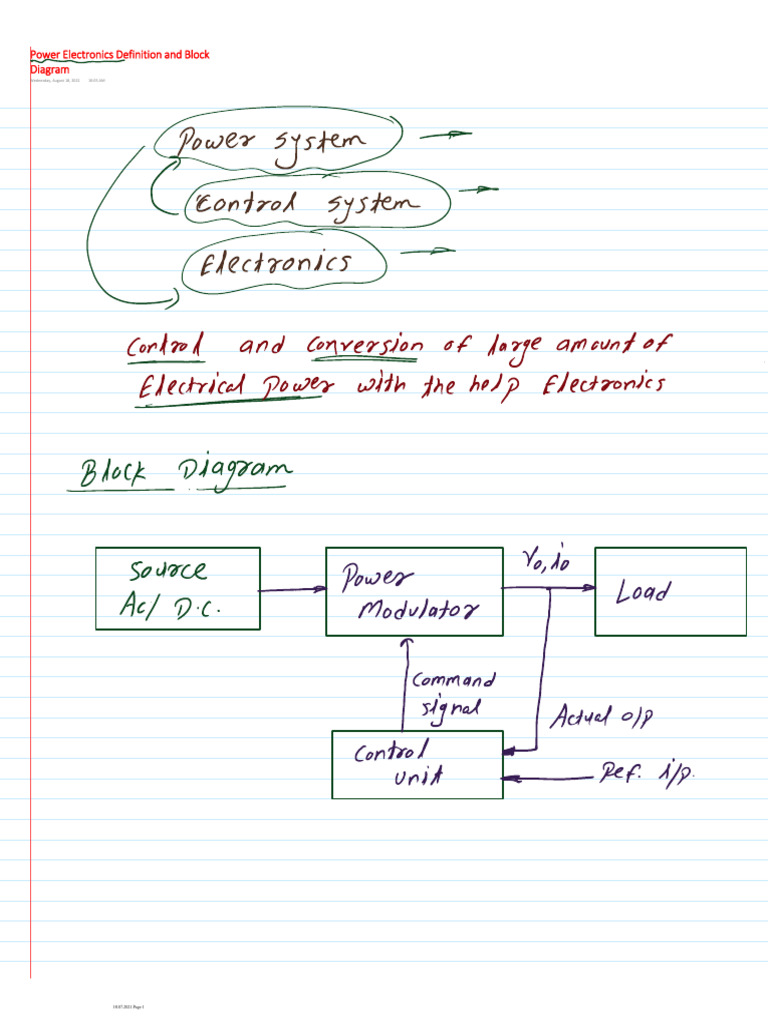 Power Electronics Definition and Block
Diagram
Power system
Control system
Electronics
Control and Conversion of large amount of
Electrical Power with the help Electronics
Block Diagram
Source
AC/ D.C.
Power
Modulator
Vo, io
Load
Command
signal
Actual o/p
Control
unit
Ref. i/p.